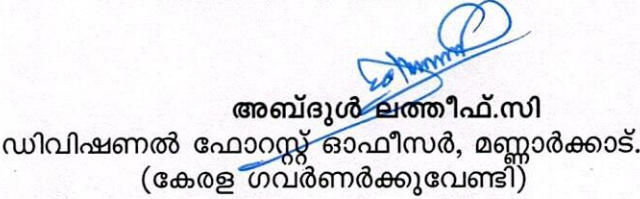 അബ്ദുൾ ലത്തീഫ്.സി
ഡിവിഷണൽ ഫോറസ്റ്റ് ഓഫീസർ, മണ്ണാർക്കാട്.
(കേരള ഗവർണർക്കുവേണ്ടി)